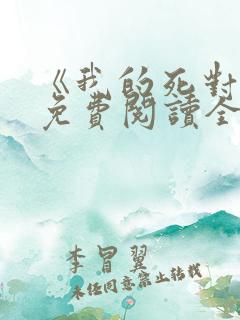 《我的死對
免費閱讀全
李冒翼
未经同意禁止转载